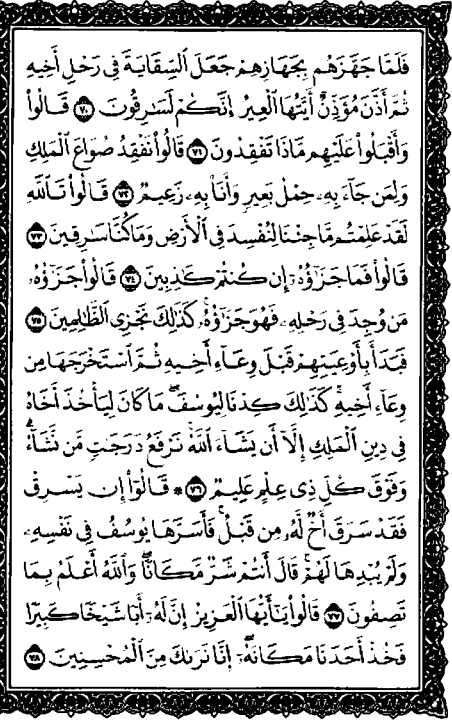 فَلَمَّا جَهَّزَهُم بِجَهَازِهِمْ جَعَلَ ٱلسِّقَايَةَ فِى رَحْلِ أَخِيهِ
ثُمَّ أَذَّنَ مُؤَذِّنٌ أَيَّتُهَا ٱلْعِيرُ إِنَّكُمْ لَسَـٰرِقُونَ ٧٠ قَالُوا۟
وَأَقْبَلُوا۟ عَلَيْهِم مَّاذَا تَفْقِدُونَ ٧١ قَالُوا۟ نَفْقِدُ صُوَاعَ ٱلْمَلِكِ
وَلِمَن جَآءَ بِهِۦ حِمْلُ بَعِيرٍ وَأَنَا۠ بِهِۦ زَعِيمٌ ٧٢ قَالُوا۟ تَٱللَّهِ
لَقَدْ عَلِمْتُم مَّا جِئْنَا لِنُفْسِدَ فِى ٱلْأَرْضِ وَمَا كُنَّا سَـٰرِقِينَ ٧٣
قَالُوا۟ فَمَا جَزَٰٓؤُهُۥٓ إِن كُنتُمْ كَـٰذِبِينَ ٧٤ قَالُوا۟ جَزَٰٓؤُهُۥ
مَن وُجِدَ فِى رَحْلِهِۦ فَهُوَ جَزَٰٓؤُهُۥ ۚ كَذَٰلِكَ نَجْزِى ٱلظَّـٰلِمِينَ ٧٥
فَبَدَأَ بِأَوْعِيَتِهِمْ قَبْلَ وِعَآءِ أَخِيهِ ثُمَّ ٱسْتَخْرَجَهَا مِن
وِعَآءِ أَخِيهِ ۚ كَذَٰلِكَ كِدْنَا لِيُوسُفَ ۖ مَا كَانَ لِيَأْخُذَ أَخَاهُ
فِى دِينِ ٱلْمَلِكِ إِلَّآ أَن يَشَآءَ ٱللَّهُ ۚ نَرْفَعُ دَرَجَـٰتٍ مَّن نَّشَآءُ ۗ
وَفَوْقَ كُلِّ ذِى عِلْمٍ عَلِيمٌ ٧٦ ۞ قَالُوٓا۟ إِن يَسْرِقْ
فَقَدْ سَرَقَ أَخٌ لَّهُۥ مِن قَبْلُ ۚ فَأَسَرَّهَا يُوسُفُ فِى نَفْسِهِۦ
وَلَمْ يُبْدِهَا لَهُمْ ۚ قَالَ أَنتُمْ شَرٌّ مَّكَانًا ۖ وَٱللَّهُ أَعْلَمُ بِمَا
تَصِفُونَ ٧٧ قَالُوا۟ يَـٰٓأَيُّهَا ٱلْعَزِيزُ إِنَّ لَهُۥٓ أَبًا شَيْخًا كَبِيرًا
فَخُذْ أَحَدَنَا مَكَانَهُۥٓ ۖ إِنَّا نَرَىٰكَ مِنَ ٱلْمُحْسِنِينَ ٧٨